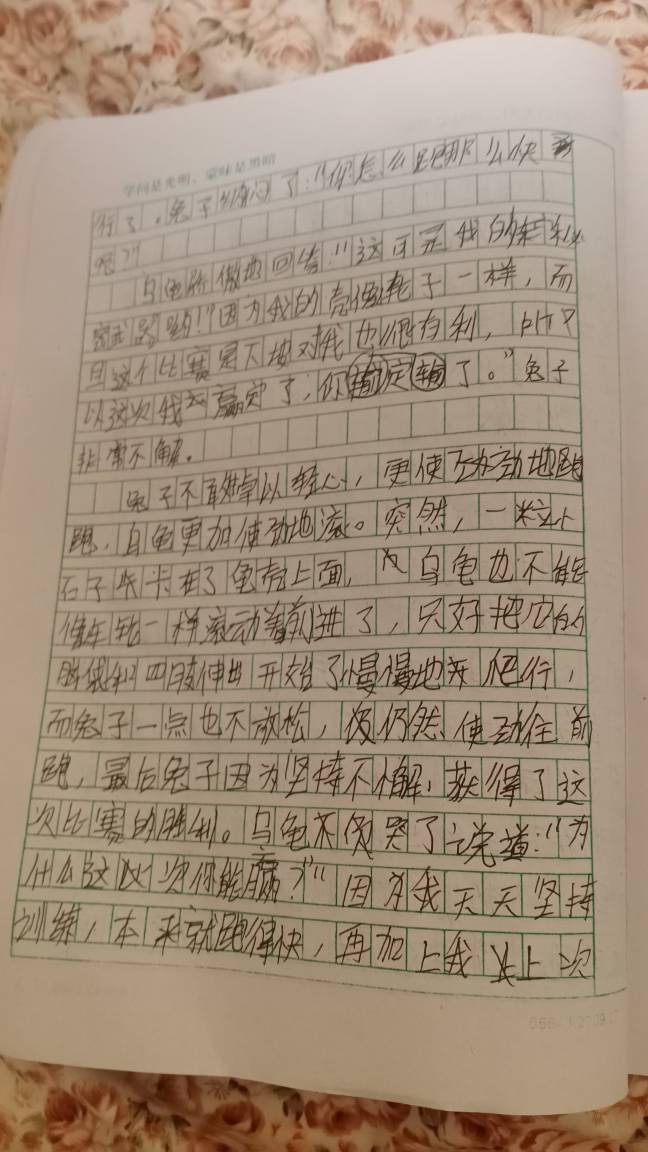 学问是光明，蒙昧是黑暗
行了。兔子 了："你怎么跑那么快
呢？"
乌龟骄傲地回答："这可是我的
武器！"因为我的壳像轮子一样，而
且这个比赛是下坡对我也很有利，所
以这次我 赢定了，你 定输了。"兔子
非常不解。
兔子不敢掉以轻心，更使劲地跑
跑，乌龟更加使劲地滚。突然，一粒小
石子 卡在了龟壳上面， 乌龟也不能
像车轮一样滚动着前进了，只好把它的
脑袋和四肢伸出开始了慢慢地 爬行，
而兔子一点也不放松， 仍然使劲往前
跑，最后兔子因为坚持不懈，获得了这
次比赛的胜利。乌龟不 哭了说道："为
什么这 次你能赢？""因为我天天坚持
训练，本来就跑得快，再加上我 上次